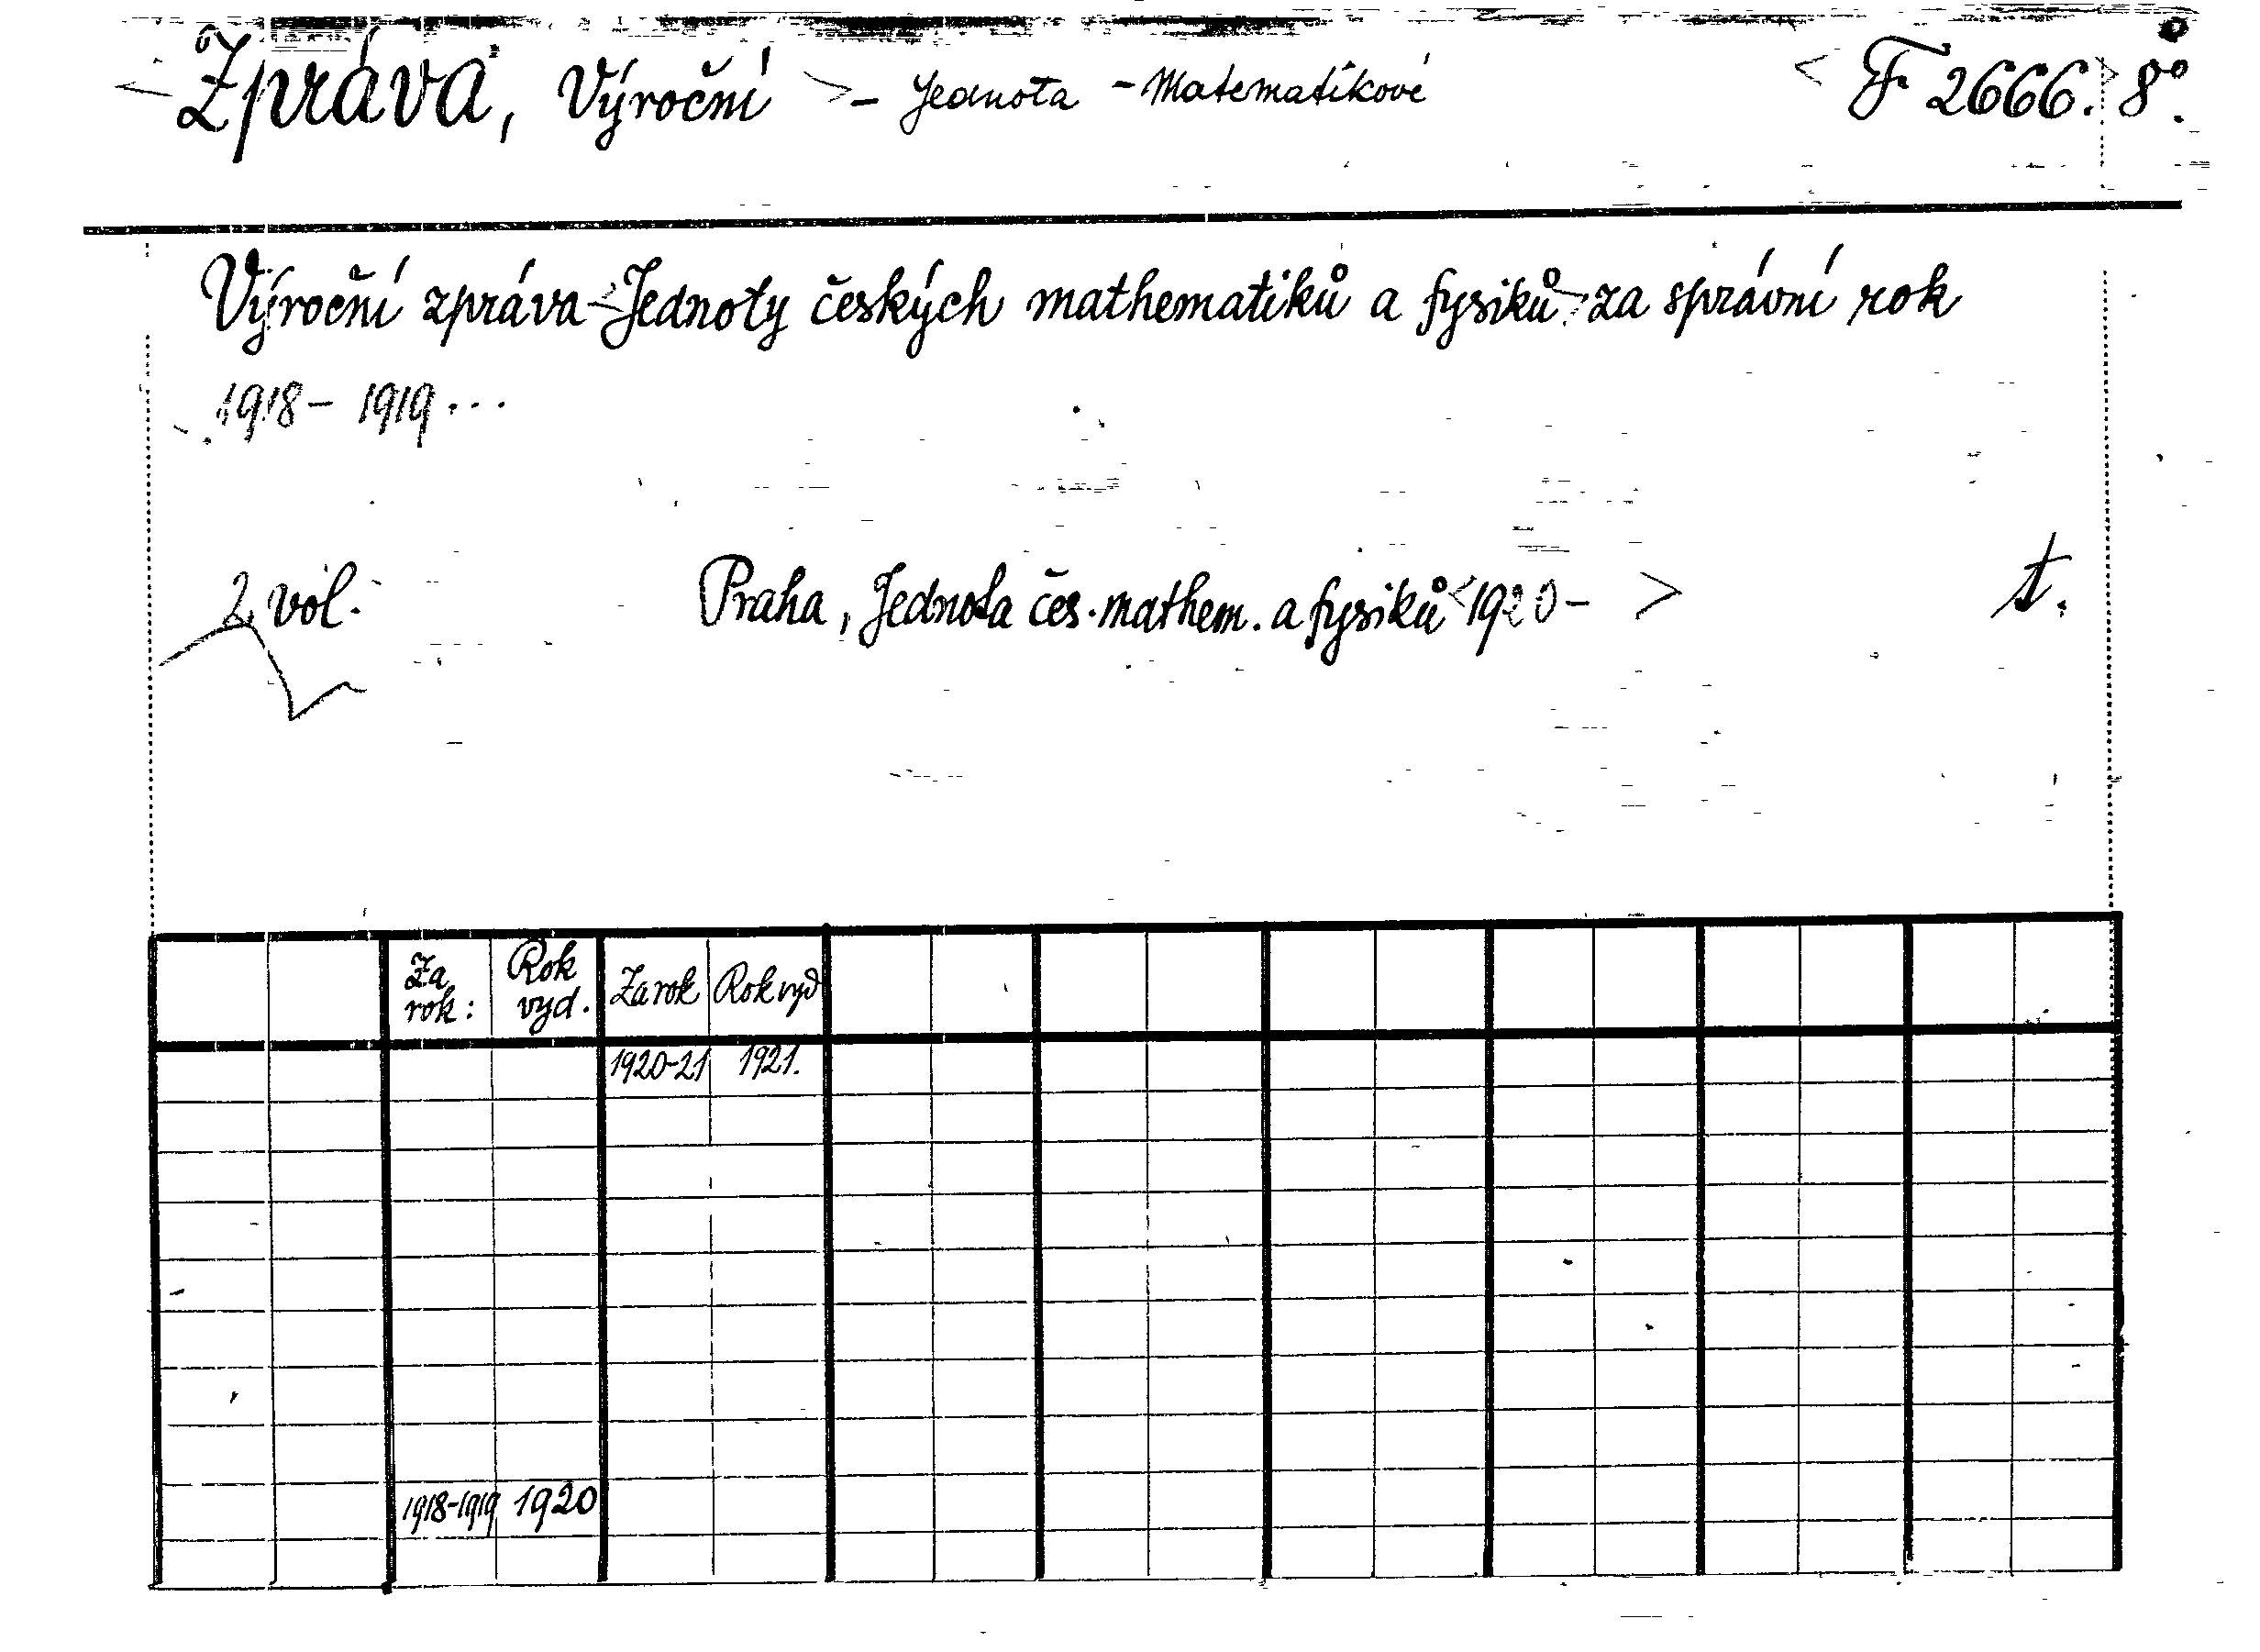 < Zpráva, Výroční > - Jednota - Matematikové < F 2666. > 8°.
Výroční zpráva < Jednoty českých mathematiků a fysiků > za správní rok
1918 - 1919...
2 vol. Praha, Jednota čes. mathem. a fysiků < 1920 - > t.
Za rok: Rok vyd. Za rok Rok vyd
1920-21 1921.
1918-1919 1920